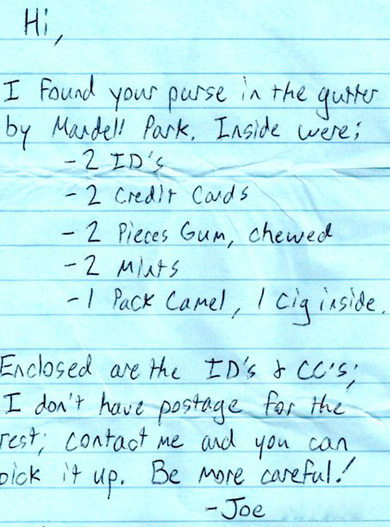 Hi,
I found your purse in the gutter
by Mardell Park. Inside were:
-2 ID's
-2 Credit Cards
-2 Pieces Gum, chewed
-2 Mints
-1 Pack Camel, 1 Cig inside.
Enclosed are the ID's & CC's;
I don't have postage for the
rest; contact me and you can
pick it up. Be more careful!
-Joe